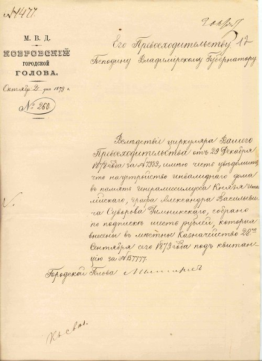 № 4477
М. В. Д.
КОВРОВСКІЙ
ГОРОДСКОЙ
ГОЛОВА.
Сентября 21 дня 1873 г.
№ 260
Его Превосходительству
Господину Владимирскому Губернатору
Вследствіе циркуляра Вашего
Превосходительства отъ 29 Декабря
имѣю честь увѣдомить,
что на устройство инвалиднаго дома
въ память Генералиссимуса Князя Ита-
лійскаго, графа Александра Василье-
вича Суворова Рымникскаго, собрано
по подпискѣ шесть рублей, которые
внесены въ мѣстное Казначейство 20го
Сентября сего 1873 года подъ квитан-
цію за №
Городской Голова